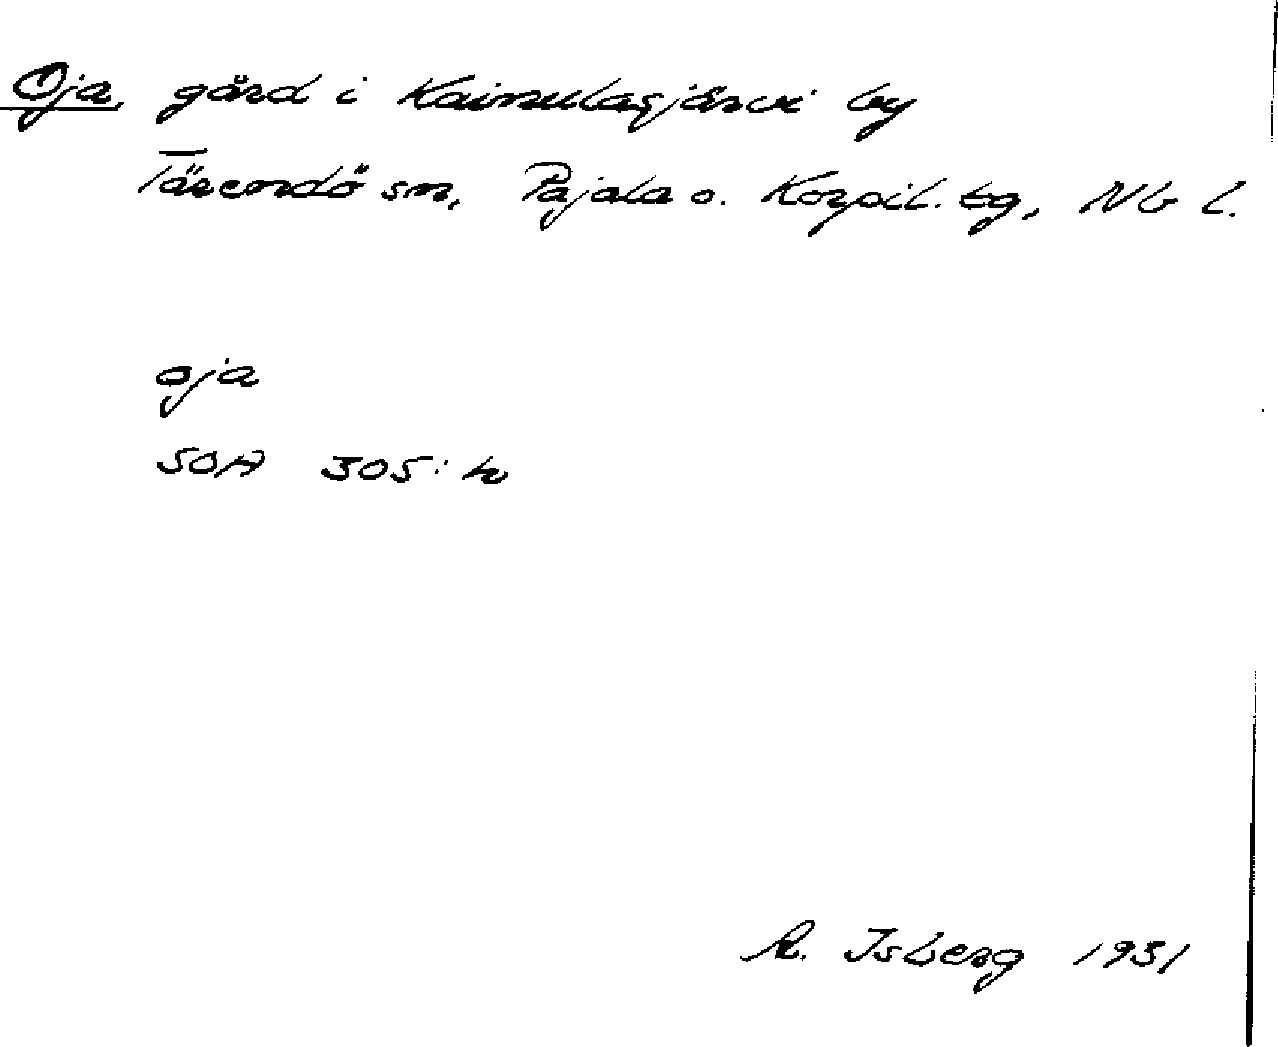 Oja gård i Kainulasjärvi by
Tärendö sn, Pajala o. Korpil. tg, Nb l.
oja
SOA 305: h
A. Isberg 1931